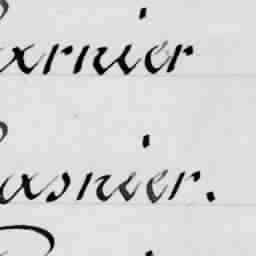 arnier
asnier.